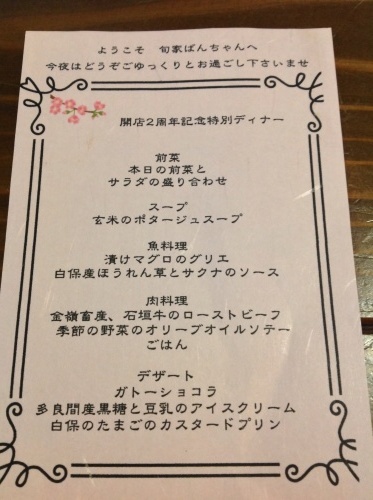 ようこそ　旬家ばんちゃんへ
今夜はどうぞごゆっくりとお過ごし下さいませ
開店2周年記念特別ディナー
前菜
本日の前菜と
サラダの盛り合わせ
スープ
玄米のポタージュスープ
魚料理
漬けマグロのグリエ
白保産ほうれん草とサクナのソース
肉料理
金嶺畜産、石垣牛のローストビーフ
季節の野菜のオリーブオイルソテー
ごはん
デザート
ガトーショコラ
多良間産黒糖と豆乳のアイスクリーム
白保のたまごのカスタードプリン